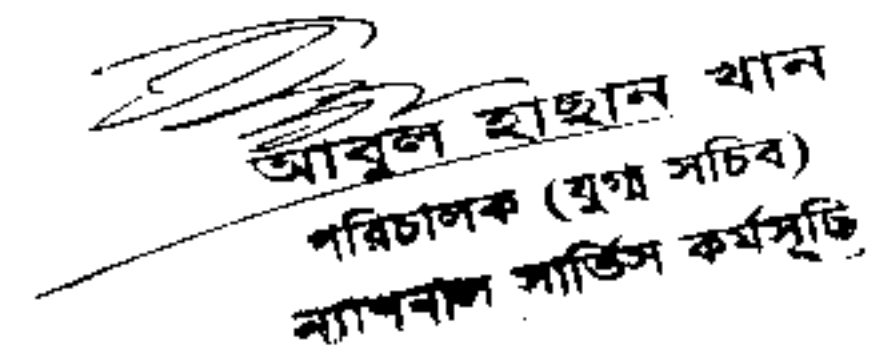 আবুল হাছান খান
পরিচালক (যুগ্ম সচিব)
ন্যাশনাল সার্ভিস কর্মসূচি